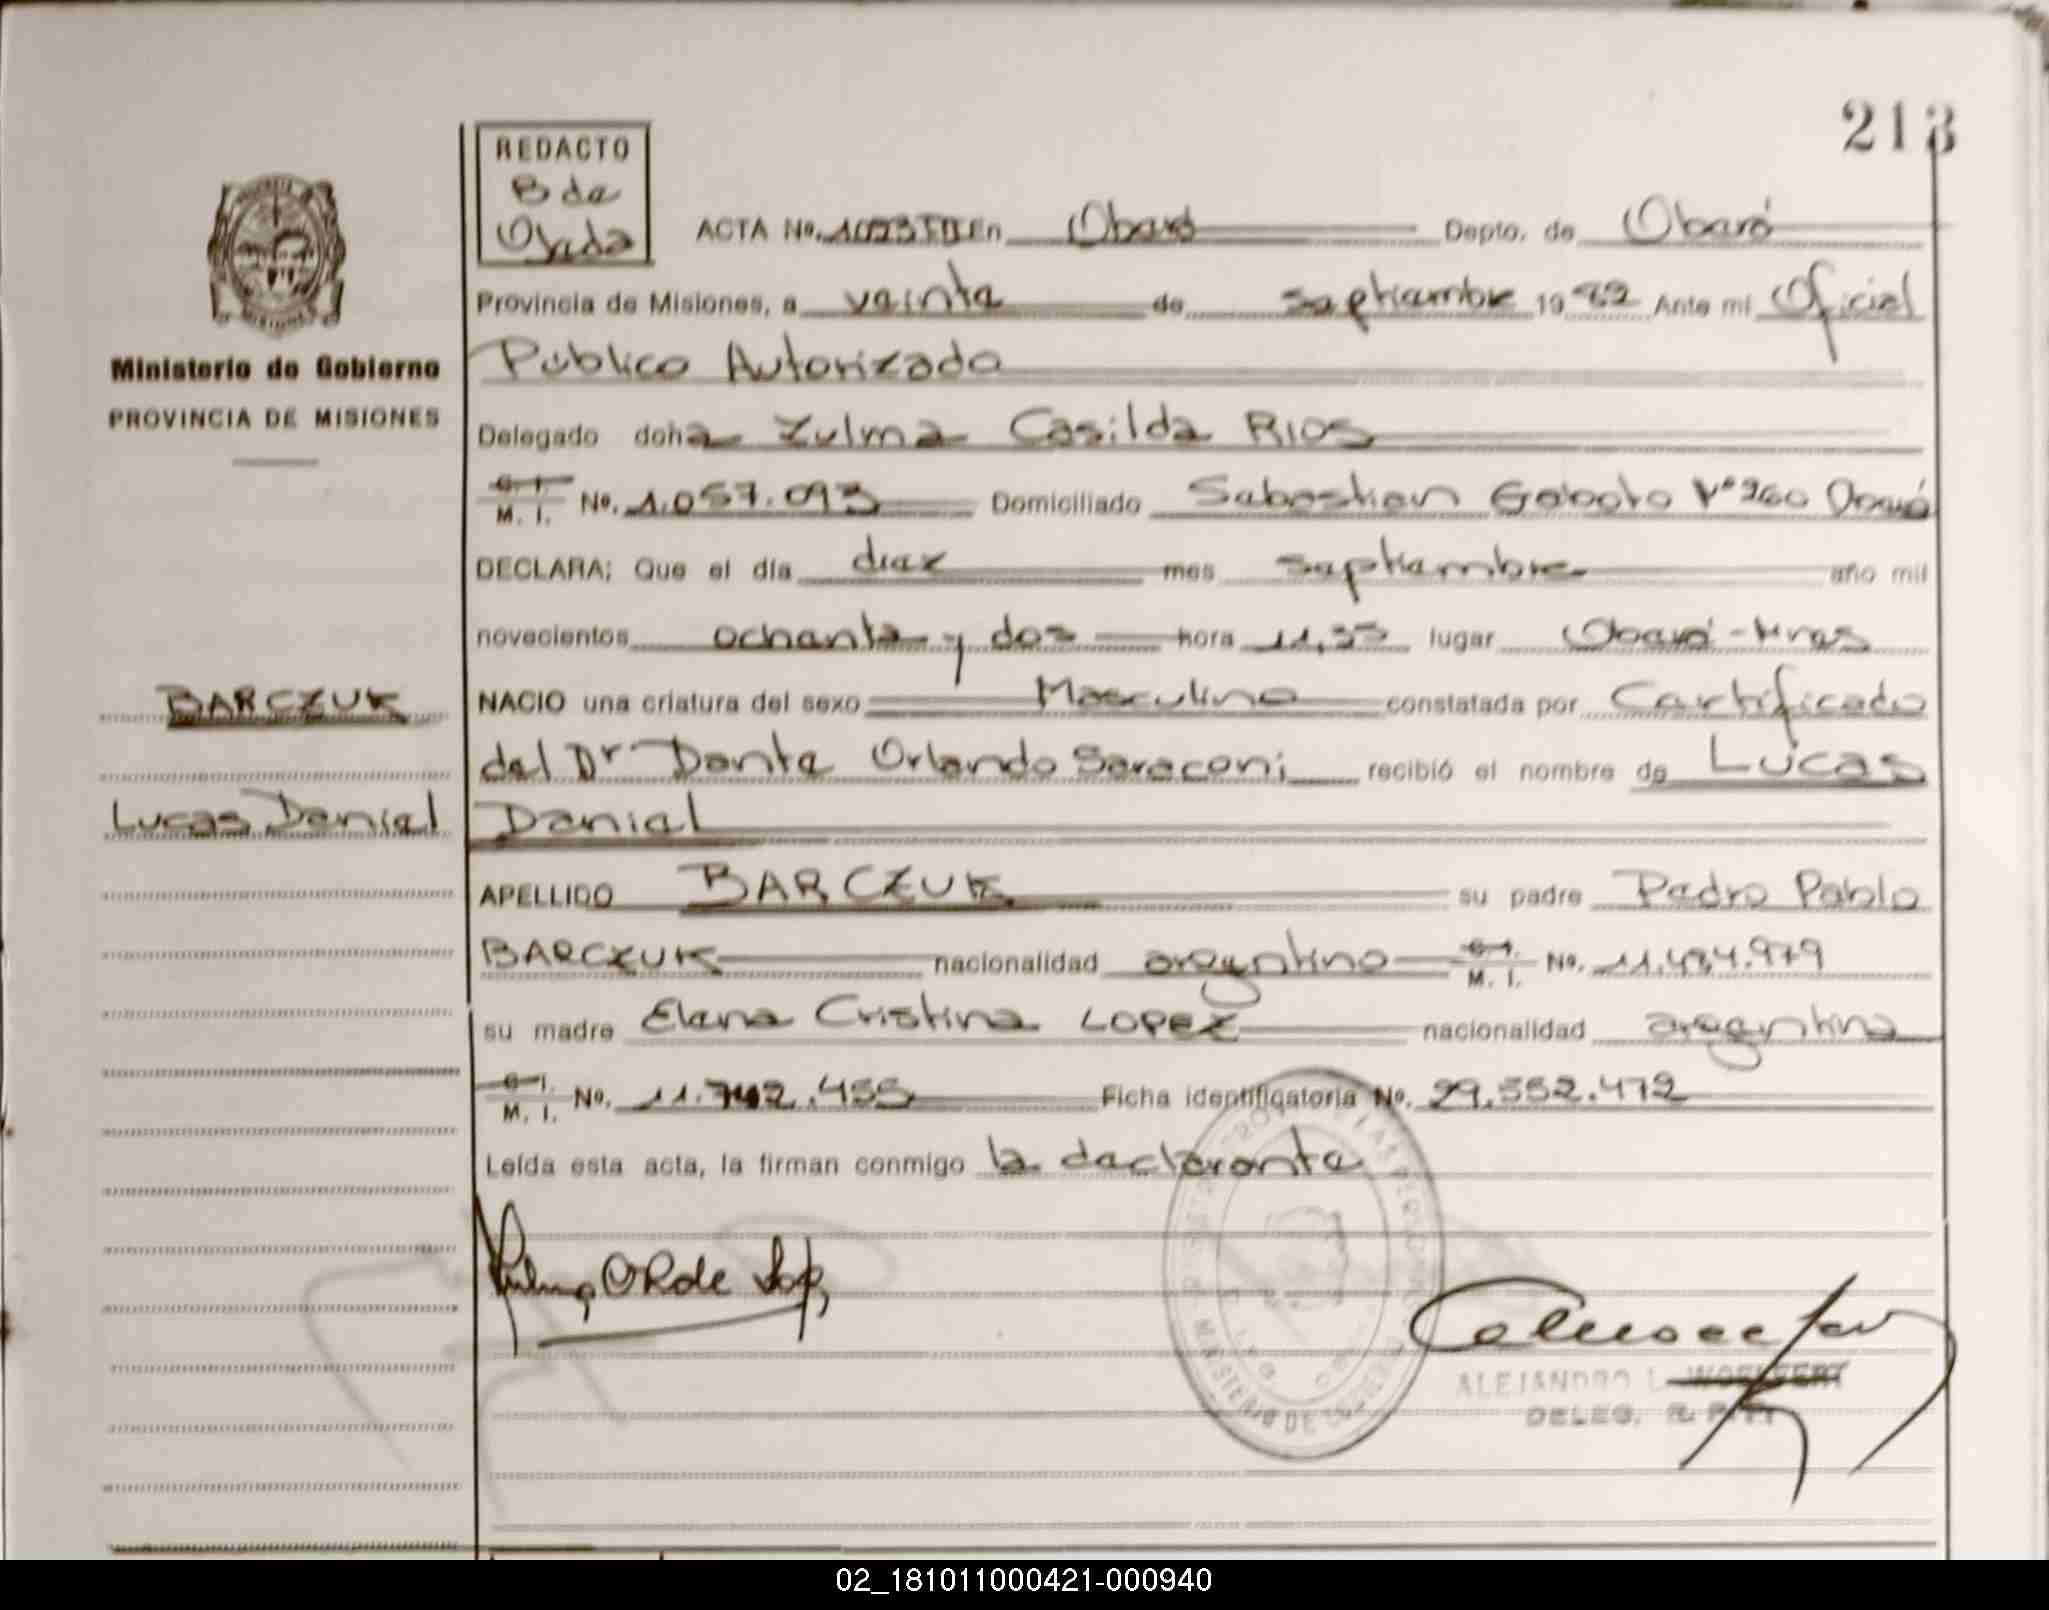 213
REDACTO
B de
Ojeda
ACTA No. 1023 TII En Oberá Depto. de Oberá
Provincia de Misiones, a veinte de septiembre 1982 Ante mi Oficial
Público Autorizado
Delegado doña Zulma Casilda RIOS
C. I. M. I. No. 1.057.093 Domiciliado Sebastian Gaboto Nº 260 Oberá
DECLARA; Que el día diez mes septiembre año mil
novecientos ochenta y dos hora 11,35 lugar Oberá-Mnes
NACIO una criatura del sexo Masculino constatada por Certificado
del Dr Dante Orlando Saraceni recibió el nombre de Lucas
Daniel
APELLIDO BARCZUK su padre Pedro Pablo
BARCZUK nacionalidad argentino C. I. M. I. No. 11.484.979
su madre Elena Cristina LOPEZ nacionalidad argentina
C. I. M. I. No. 11.742.455 Ficha identificatoria No. 29.552.472
Leída esta acta, la firman conmigo la declarante
Ministerio de Gobierno
PROVINCIA DE MISIONES
BARCZUK
Lucas Daniel
ALEJANDRO L. WOELFERT
DELEG. R. P.
02_181011000421-000940